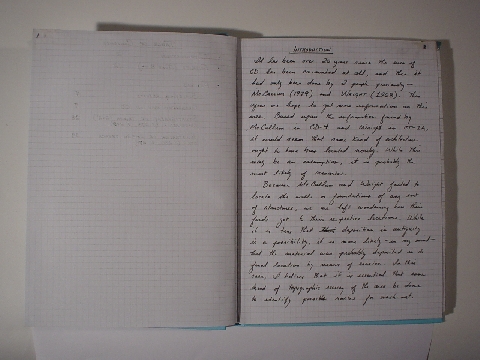 INTRODUCTION
It has been over 20 years since the area of
CD has been re-worked at all, and then it
had only been done by 2 people previously —
McCallum (1929) and Wright (1962). This
year we hope to get more information on this
area. Based upon the information found by
McCallum in CD-4 and Wright in
it would seem that some kind of architecture
ought to have been located nearby. While this
may be an assumption, it is probably the
most likely of scenarios.
Because McCallum and Wright failed to
locate the walls or foundations of any sort
of structure, we are left wondering how their
finds got to their respective locations. While
it is true that deposition in antiquity
is a possibility, it is more likely — in my mind —
that the material was probably deposited in its
final location by means of erosion. In this
case, I believe that it is essential that some
kind of topographic survey of the area be done
to identify possible sources for such